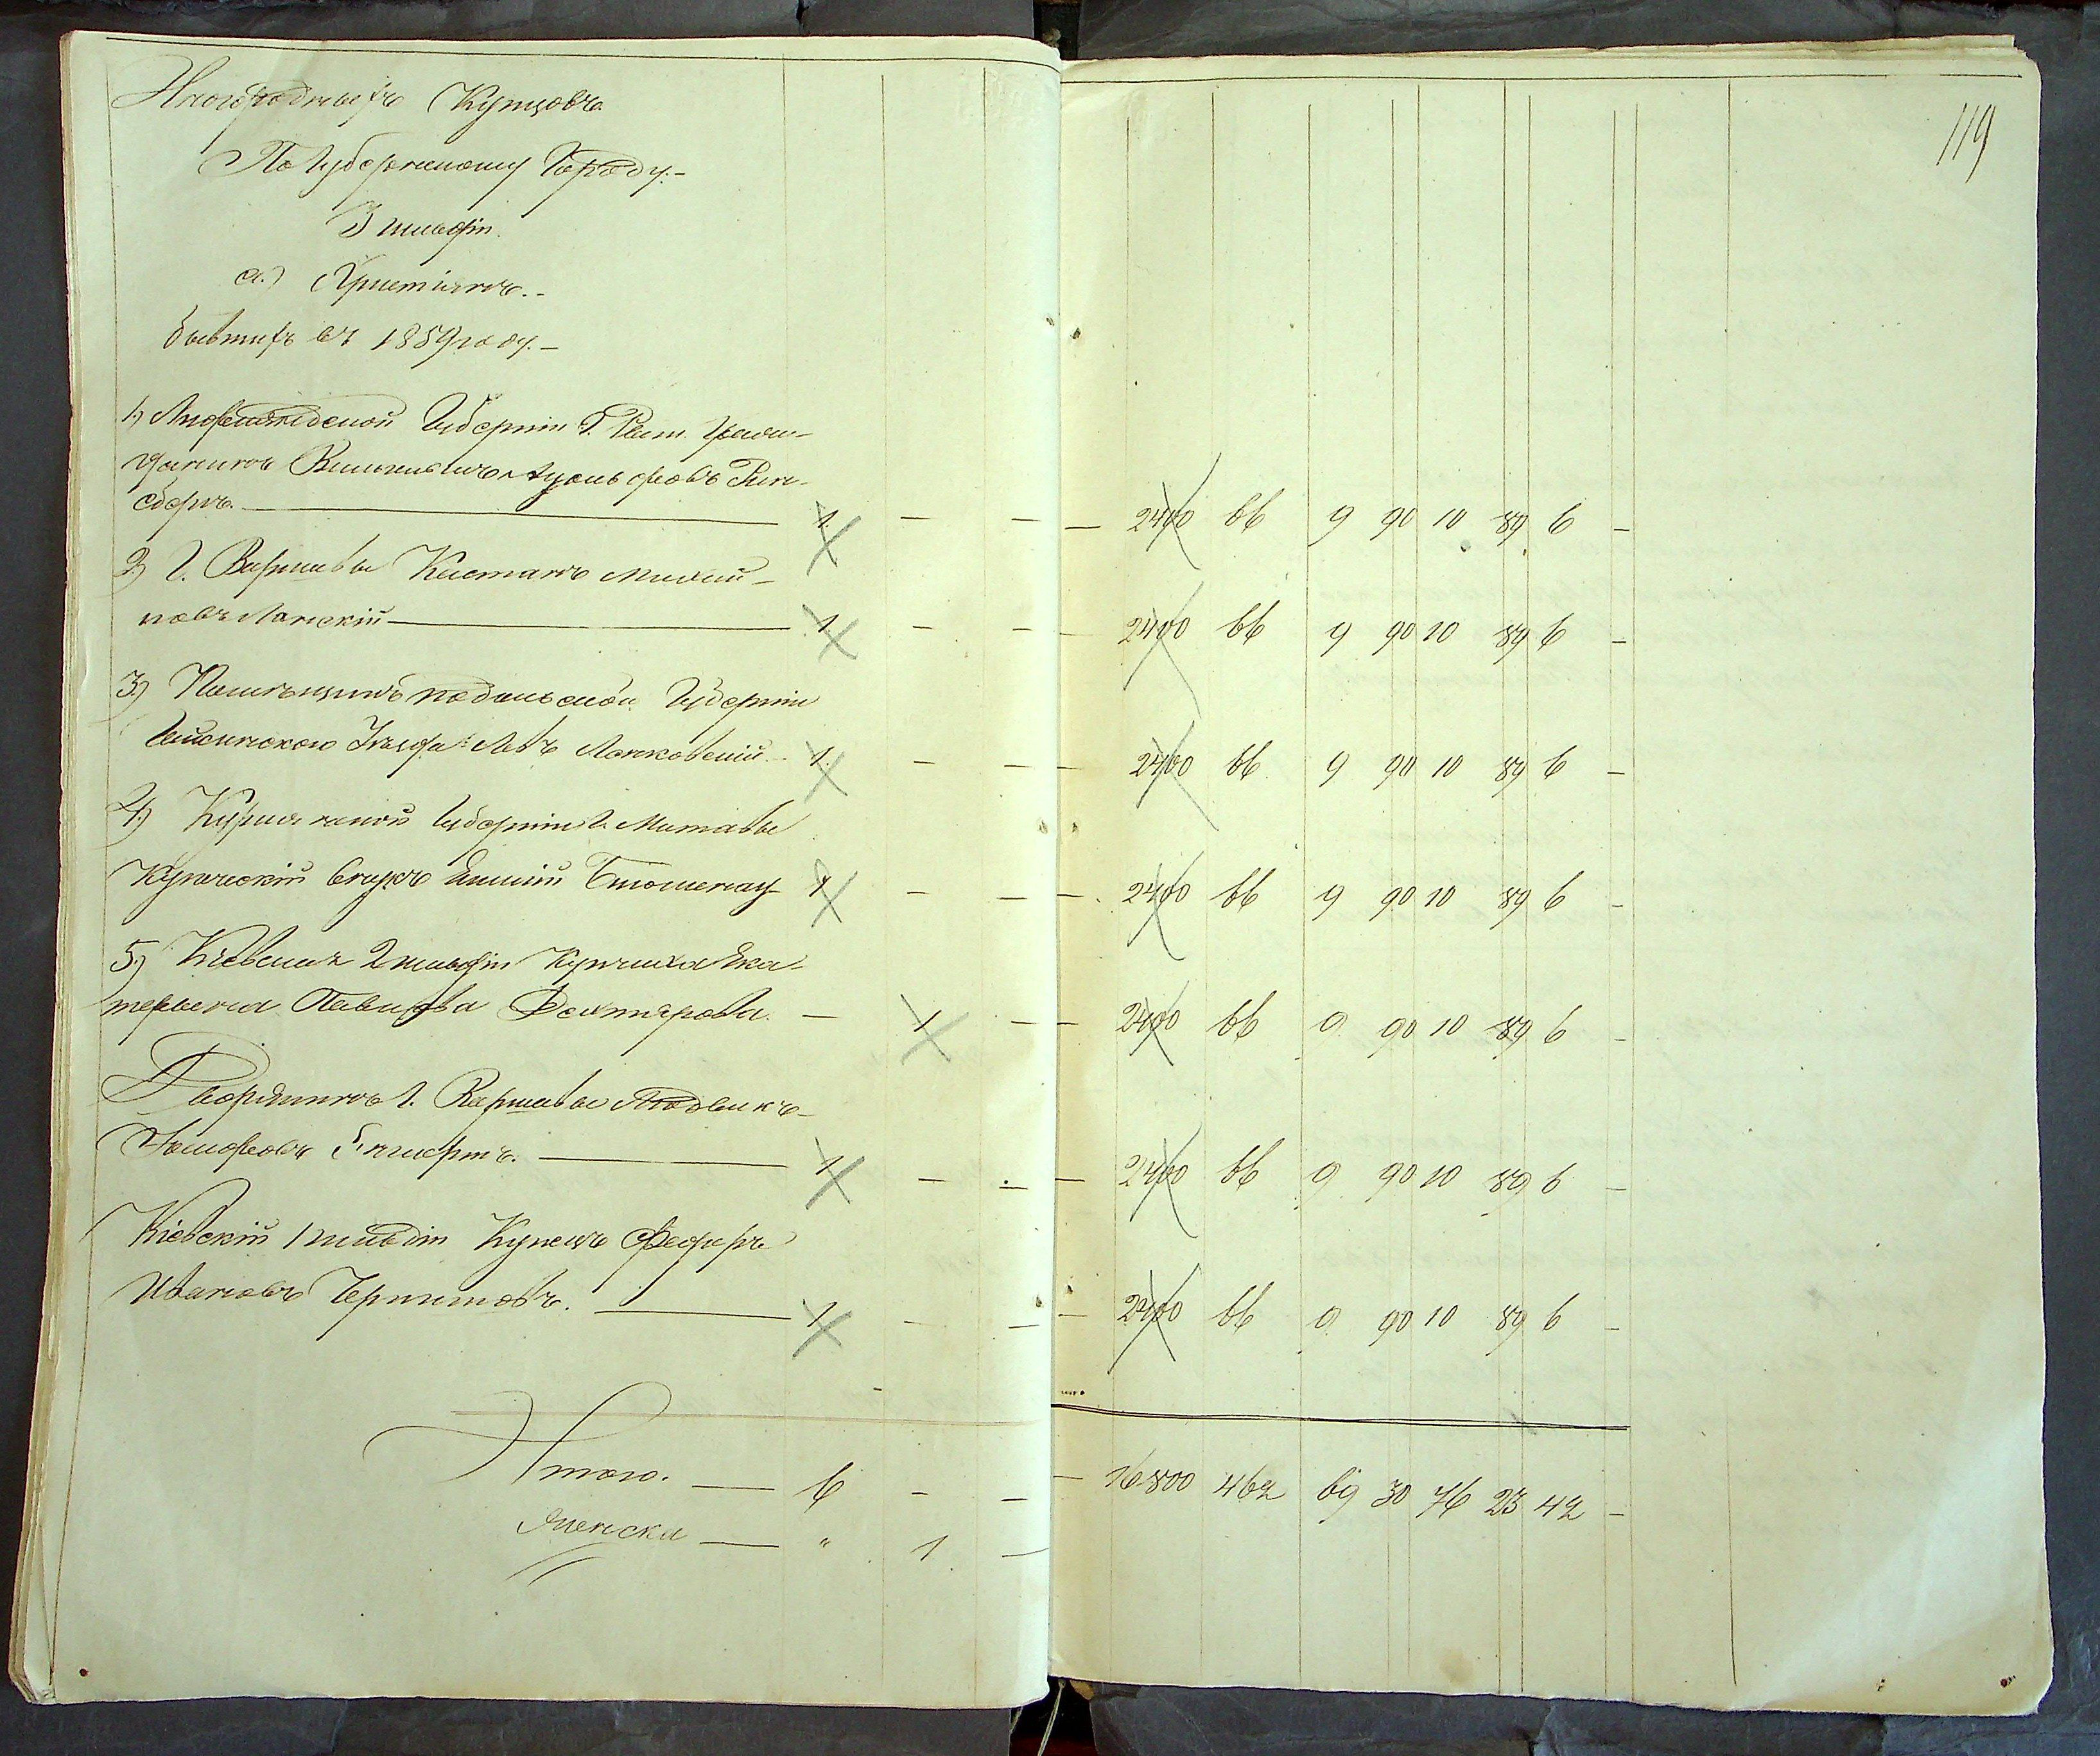 Иногородныхъ Купцовъ
По Губернскому Городу.-
3 гильдіи
а.) Христіянъ.-
бывшихъ въ 1859 году.-
1) Лифляндской Губерніи Г. Риги Граж-
данинъ Вильгельмъ Адольфовъ Рин-
сбергъ. — 1. — — — 2400 66 9 90 10 89 6 —
2) Г. Варшавы Каетанъ Михай-
ловъ Ланскій — 1. — — — 2400 66 9 90 10 89 6 —
3) Помѣщикъ Подольской Губерніи
Гайсинскаго Уѣзда Левъ Лонковскій — 1. — — — 2400 66 9 90 10 89 6 —
4) Курляндской Губерніи Г. Митавы
Купеческій внукъ Емилій 1 — — — 2400 66 9 90 10 89 6 —
5) Кіевская 2 гильдіи Купчиха Ека-
терина Павлова Дехтярова. — 1 — — 2400 66 9 90 10 89 6 —
Дворянинъ Г. Варшавы Людвикъ
Іосифовъ — 1 — — — 2400 66 9 90 10 89 6 —
Кіевскій 1 гильдіи Купецъ Федоръ
Ивановъ Чернышовъ. — 1 — — — 2400 66 9 90 10 89 6 —
Итого. — 6 — — — 16800 462 69 30 76 23 42 —
Женска — " 1 —
119